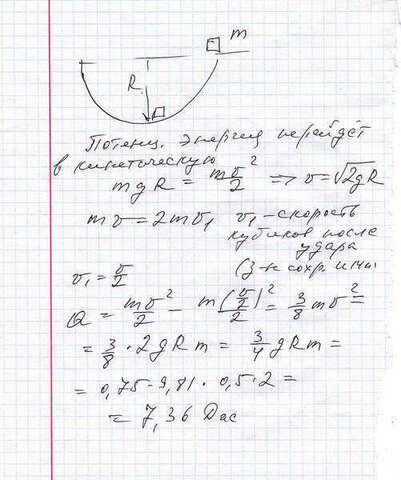 m
R
Потенц. энергия перейдёт
в кинетическую
mgR = mv²/2 ⇒ v = √2gR
mv = 2mv₁ v₁ - скорость
кубиков после
удара
(з-н сохр. имп.
v₁ = v/2
Q = mv²/2 - m(v/2)²/2 = 3/8 mv² =
= 3/8 · 2gRm = 3/4 gRm =
= 0,75 · 9,81 · 0,5 · 2 =
= 7,36 Дж